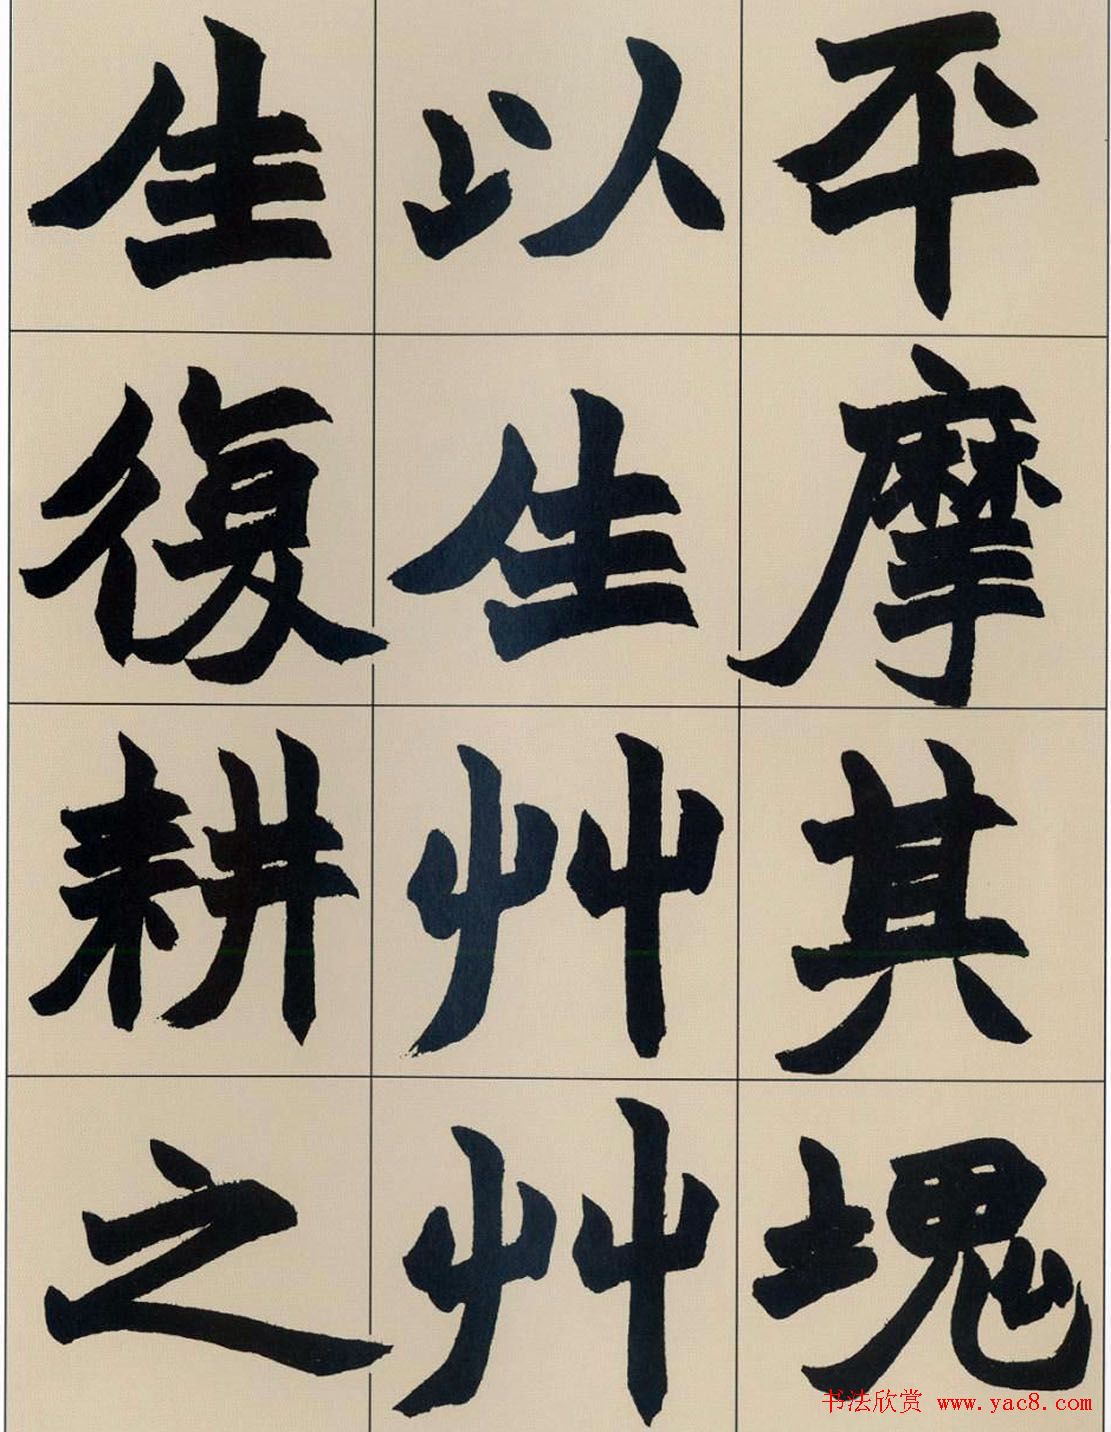 平摩其塊
以生艸艸
生復耕之
书法欣赏 www.yac8.com